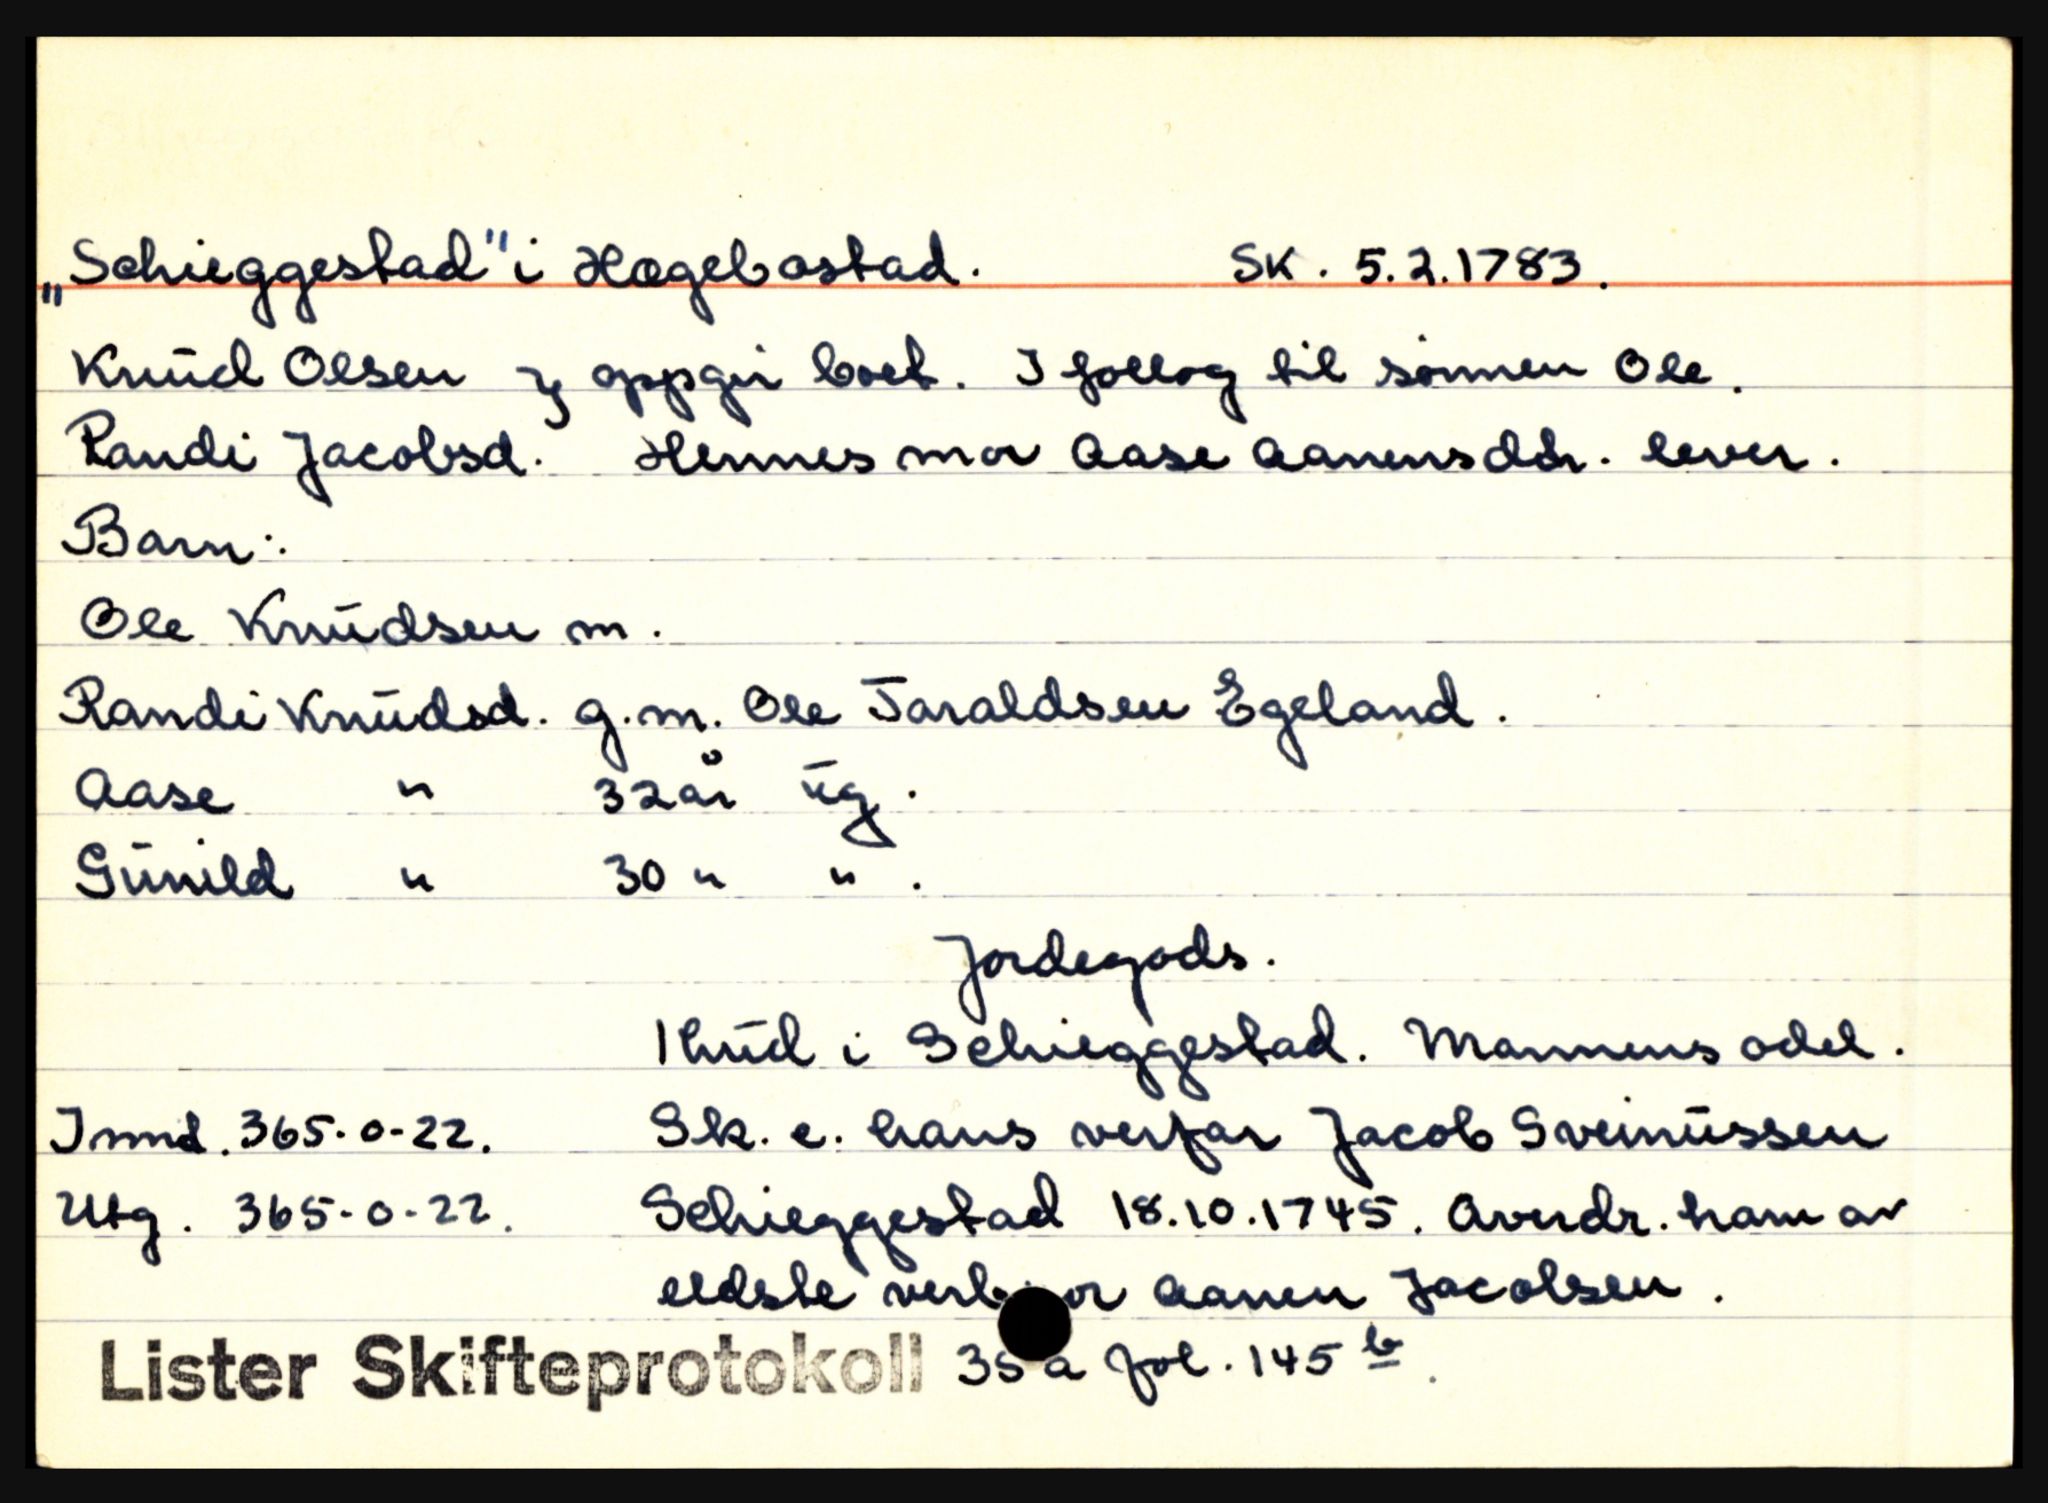 „Schieggestad" i Hægebostad. SK. 5.2.1783.
Knud Olsen og oppgir boet. I follog til sønnen Ole.
Randi Jacobsd. Hennes mor Aase Aanensddr. lever.
Barn:
Ole Knudsen m.
Randi Knudsd. g.m. Ole Taraldsen Egeland.
Aase " 32 år ug.
Gunild " 30 " " .
Jordegods.
1 hud i Schieggestad. Mannens odel.
Innd. 365-0-22. Sk. e. hans verfar Jacob Sveinussen
Utg. 365-0-22. Schieggestad 18.10.1745. Averdr. ham av
eldste Aanen Jacobsen.
Lister Skifteprotokoll 35a fol. 145 b.